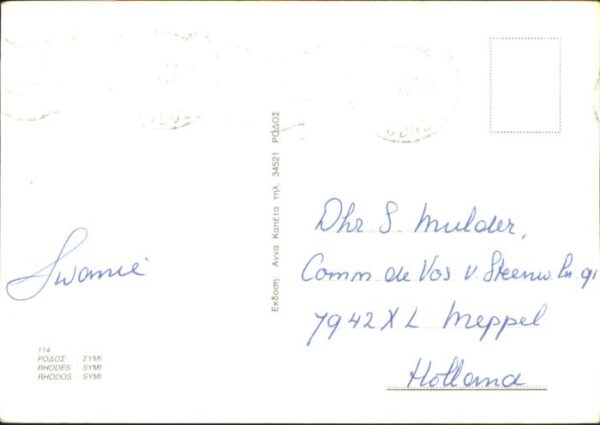 Swanië
114
ΡΟΔΟΣ : ΣΥΜΙ
RHODES : SYMI
RHODOS : SYMI
Εκδοση: Αννα Καπέτα τηλ. 34521 ΡΟΔΟΣ
Dhr S. Mulder,
Comm. de Vos v. Steenw. ln. 91
7942XL Meppel
Holland